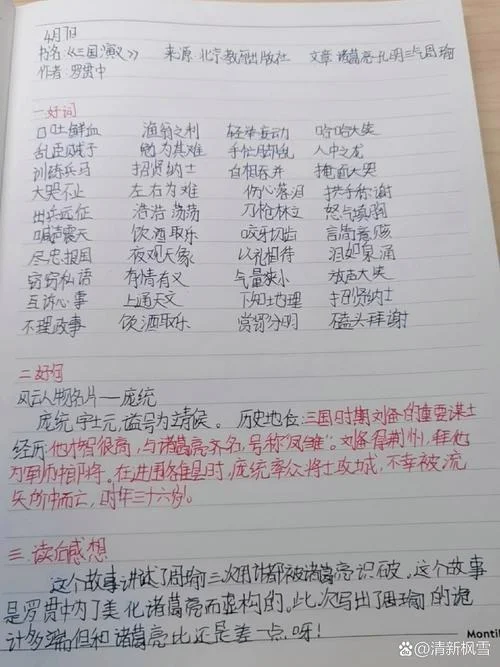 4月7日
书名:《三国演义》 来源 北京教育出版社 文章 诸葛亮孔明三气周瑜
作者:罗贯中
一好词
口吐鲜血 渔翁之利 轻举妄动 哈哈大笑
乱臣贼子 勉为其难 手忙脚乱 人中之龙
训练兵马 招贤纳士 自相吞并 掩面大哭
大哭不止 左右为难 伤心落泪 拱手称谢
出兵远征 浩浩荡荡 刀枪林立 怒气填胸
喊声震天 饮酒取乐 咬牙切齿 言简意赅
尽忠报国 夜观天象 以礼相待 泪如泉涌
窃窃私语 有情有义 气量狭小 放声大笑
互诉心事 上通天文 下知地理 招贤纳士
不理政事 饮酒取乐 赏罚分明 磕头拜谢
二好句
风云人物名片——庞统
庞统字士元,谥号为靖侯。历史地位:三国时期刘备的重要谋士
经历:他才智很高,与诸葛亮齐名,号称“凤雏”。刘备得荆州,拜他
为军师中郎将。在进围雒县时,庞统率众将士攻城,不幸被流
矢所中而亡,时年三十六岁。
三.读后感想
这个故事讲述了周瑜三次用计都被诸葛亮识破。这个故事
是罗贯中为了美化诸葛亮而虚构的。此次写出了周瑜的诡
计多端但和诸葛亮比还是差一点呀!
Montil
@清新枫雪